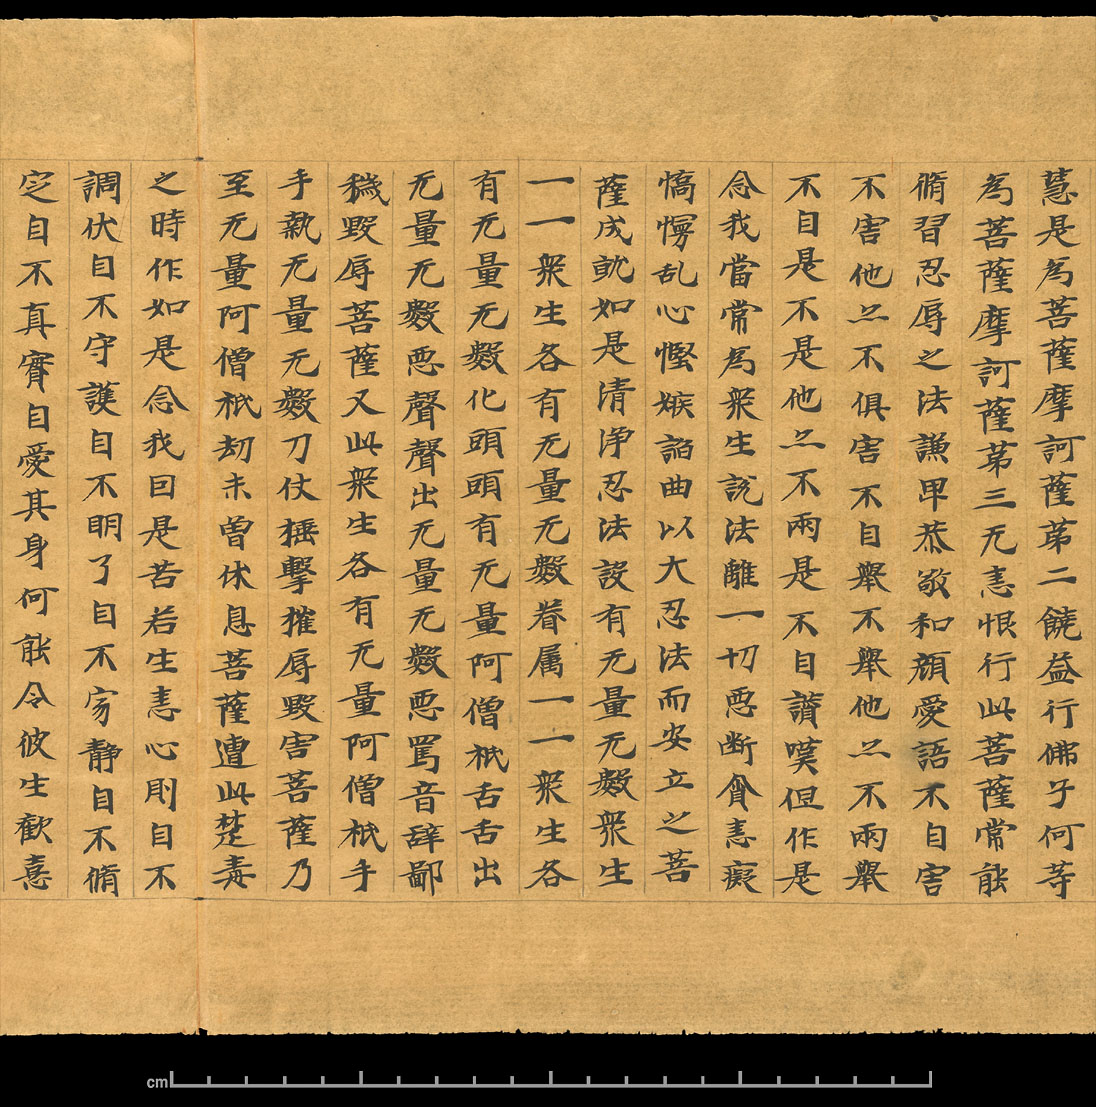 慧是為菩薩摩訶薩苐二饒益行佛子何等
為菩薩摩訶薩苐三无恚恨行此菩薩常能
脩習忍辱之法謙卑恭敬和顏愛語不自害
不害他亦不俱害不自舉不舉他亦不兩舉
不自是不是他亦不兩是不自讃嘆但作是
念我當常為衆生說法離一切惡断貪恚癡
憍慢乱心慳嫉謟曲以大忍法而安立之菩
薩成就如是清淨忍法設有无量无數衆生
一一衆生各有无量无數眷属一一衆生各
有无量无數化頭頭有无量阿僧祇舌舌出
无量无數惡聲聲出无量无數惡罵音辞鄙
穢毀辱菩薩又此衆生各有无量阿僧祇手
手執无量无數刀仗捶擊摧辱毀害菩薩乃
至无量阿僧祇劫未曾休息菩薩遭此楚毒
之時作如是念我因是苦若生恚心則自不
調伏自不守護自不明了自不家静自不脩
定自不真實自愛其身何能令彼生歡憙
cm